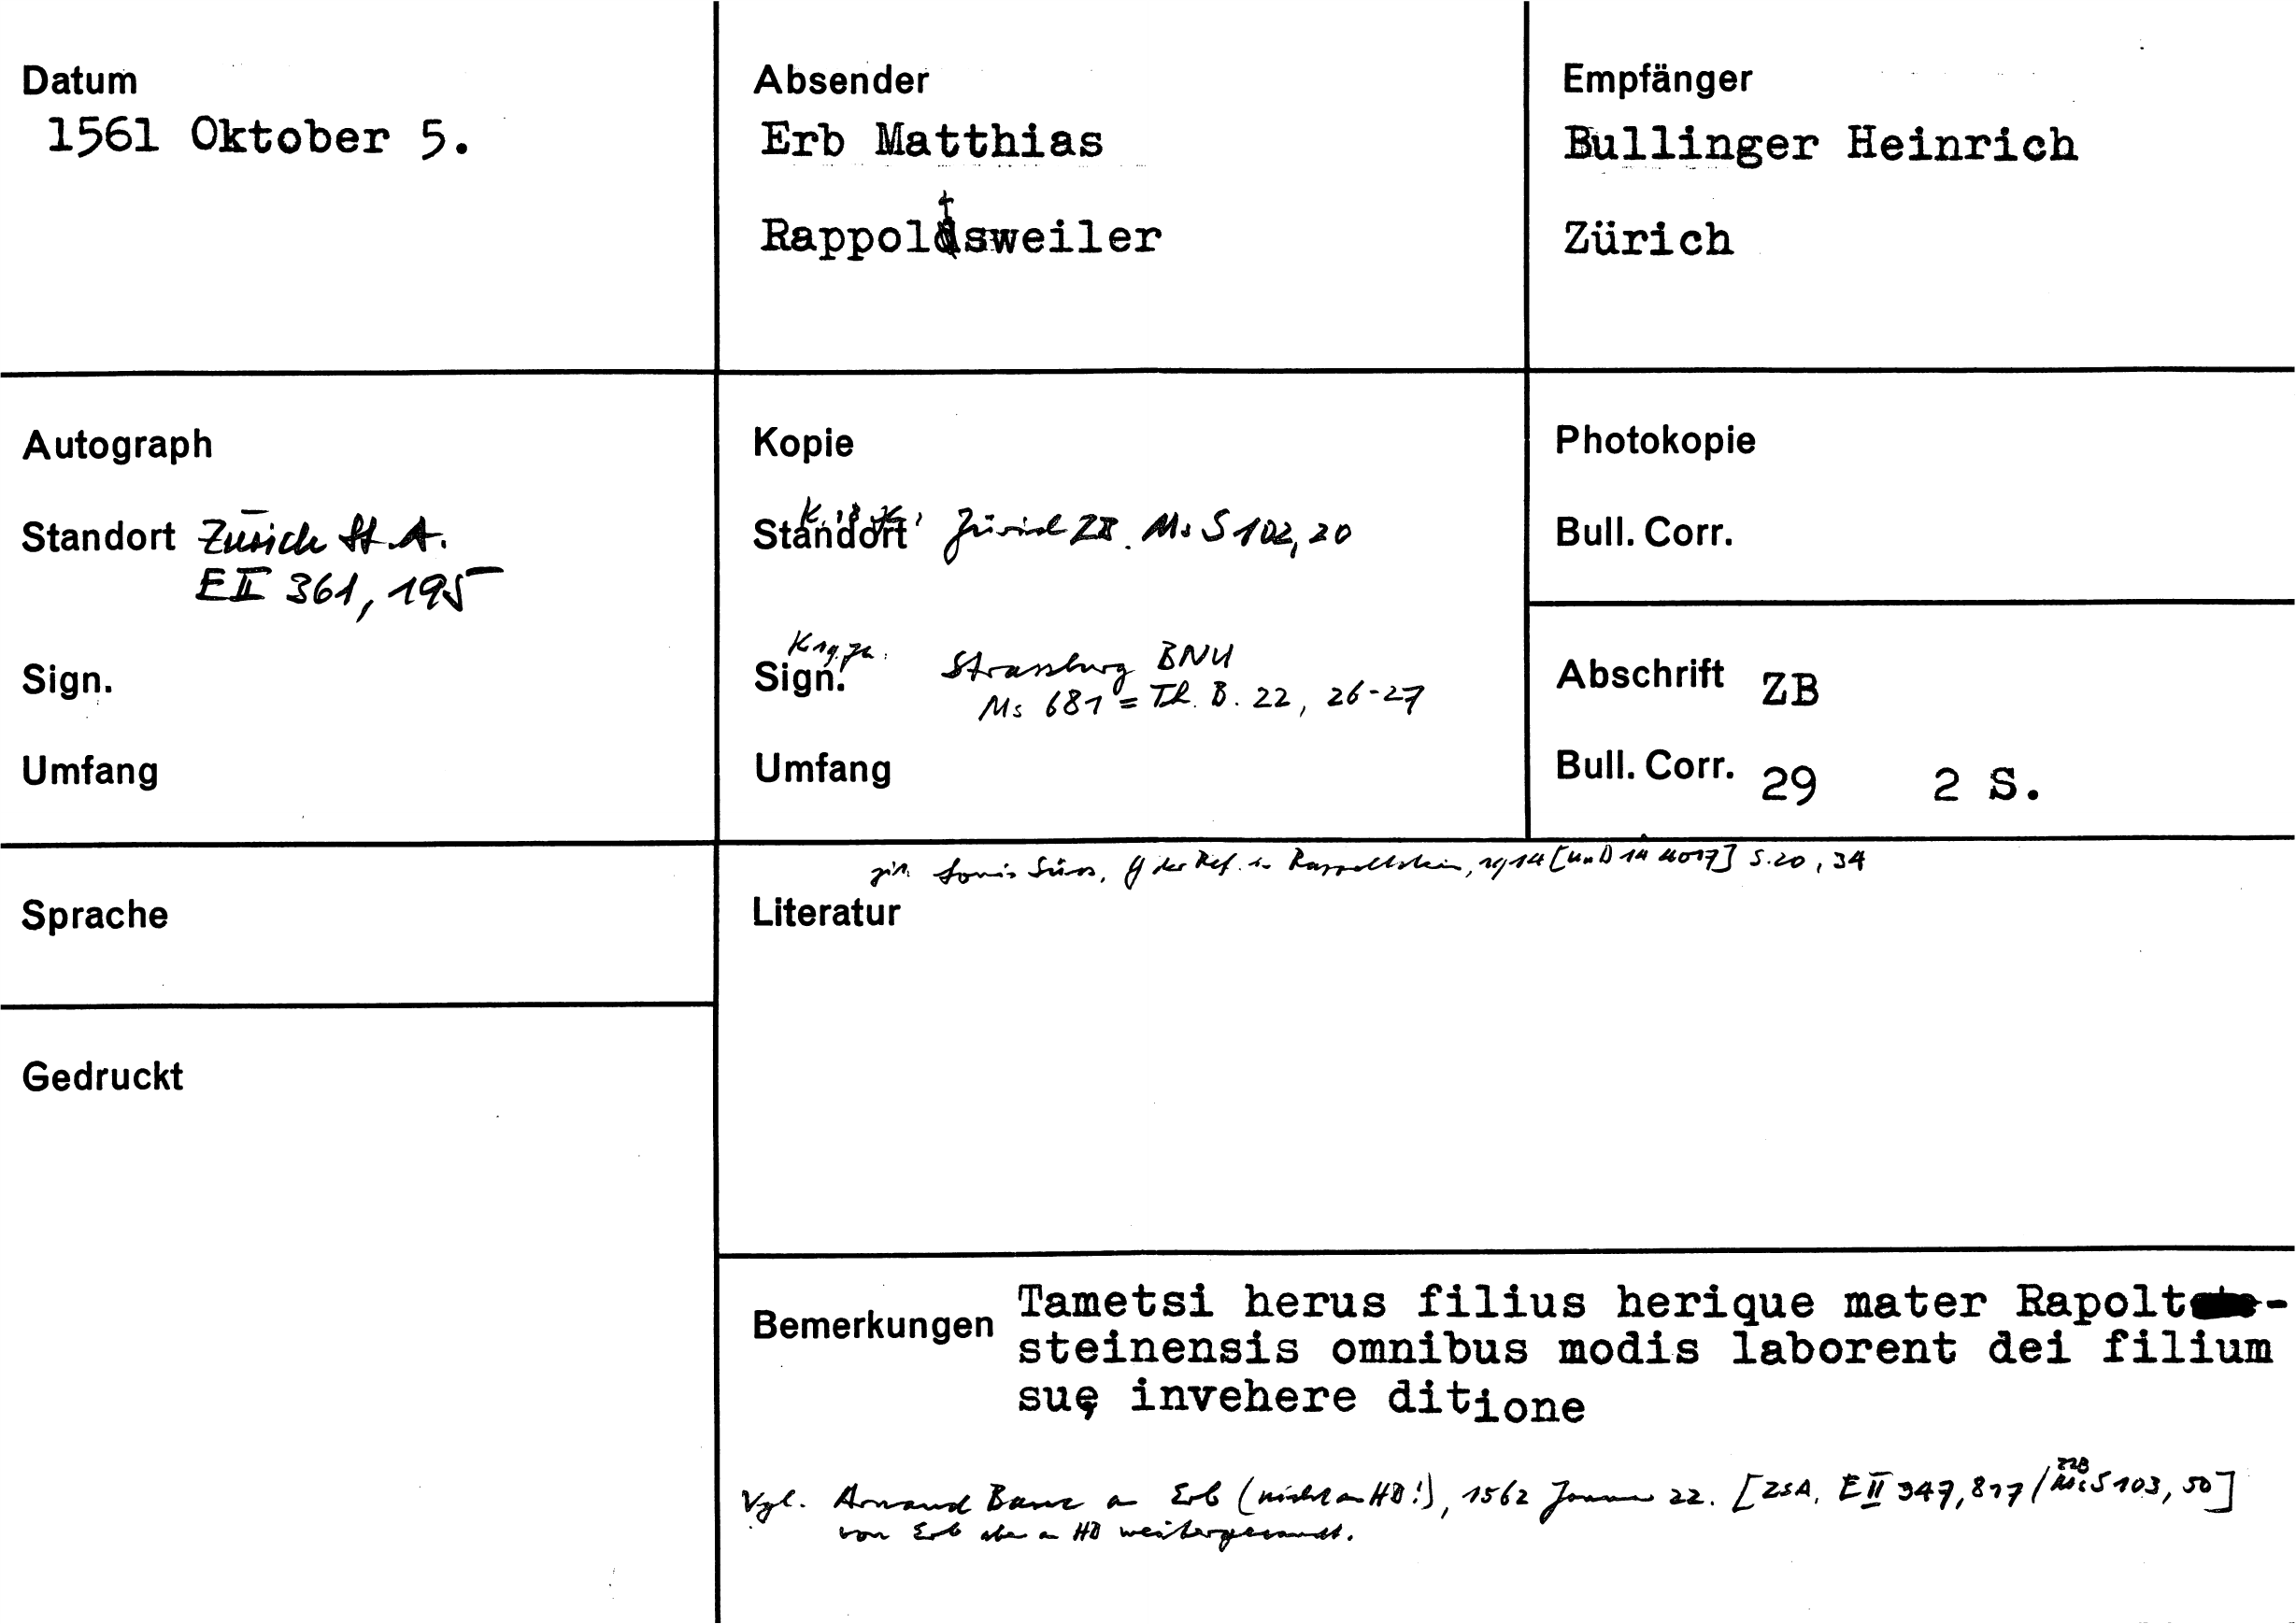 Datum
1561 Oktober 5.
Absender
Erb Matthias
Rappoltsweiler
Empfänger
Bullinger Heinrich
Zürich
Autograph
Standort Zürich St.A.
EII 361, 195
Sign.
Umfang
Kopie
Standort Zürich ZB. Ms S 102, 20
Sign. Strassburg BNU
Ms 681 = Th. B. 22, 26-27
Umfang
Photokopie
Bull. Corr.
Abschrift ZB
Bull. Corr. 29 2 S.
Sprache
Gedruckt
zit. Louis Süss, G der Ref. in Rappoltstein, 1914 S. 20, 34
Literatur
Bemerkungen Tametsi herus filius herique mater Rapolt-
steinensis omnibus modis laborent dei filium
suę invehere ditione
Vgl. Arnaud Banc an Erb (nicht an HB!), 1562 Januar 22. [ZSA, EII 347, 817 / ZZB Ms S 103, 50]
von Erb aber an HB weitergesandt.